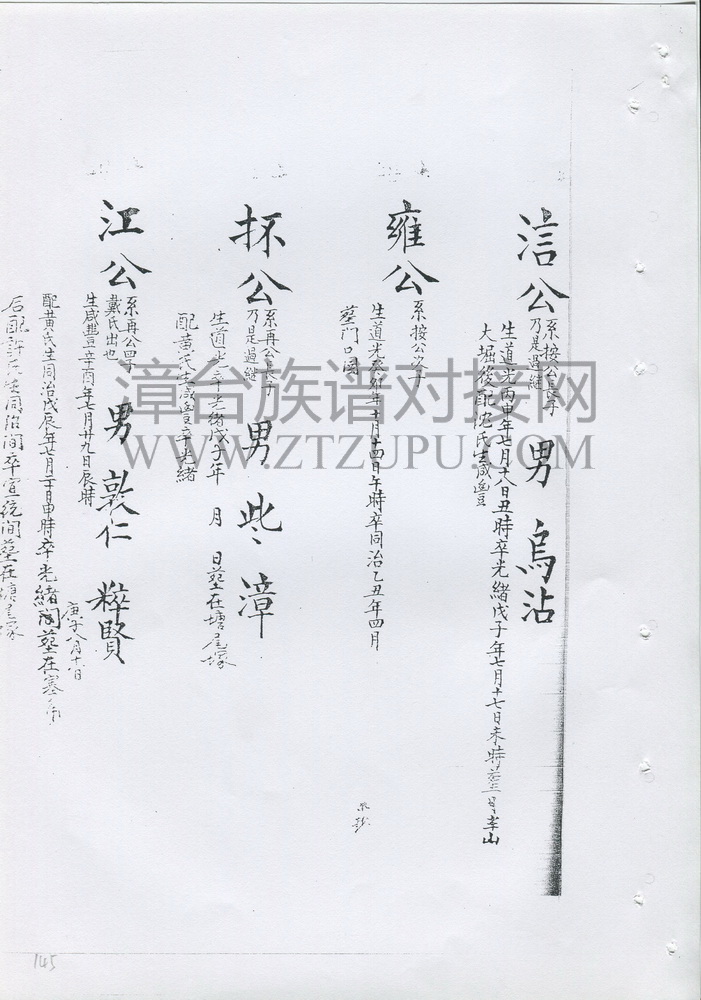 公
系接公長子
乃是過繼
男 烏沾
生道光丙申年七月十八日丑時卒光緒戊子年七月十七日未時
大堀後配沈氏生咸豐
雍公
系接公次子
生道光癸卯年十月十四日午時卒同治乙丑年四月
墓門口園
抔公
系再公長子
乃是過繼
男 些 漳
生道光卒光緒戊子年 月 日墓在塘尾塚
配黄氏生咸豐卒光緒
江公
系再公四子
戴氏出也
男 敦仁 粹賢
生咸豐辛酉年七月廿九日辰時
庚子八月十六日
配黄氏生同治戊辰年七月二十日申時卒光緒間墓在寨
后配許氏生同治間卒宣統間墓在塘尾塚
漳台族谱对接网
WWW.ZTZUPU.COM
145